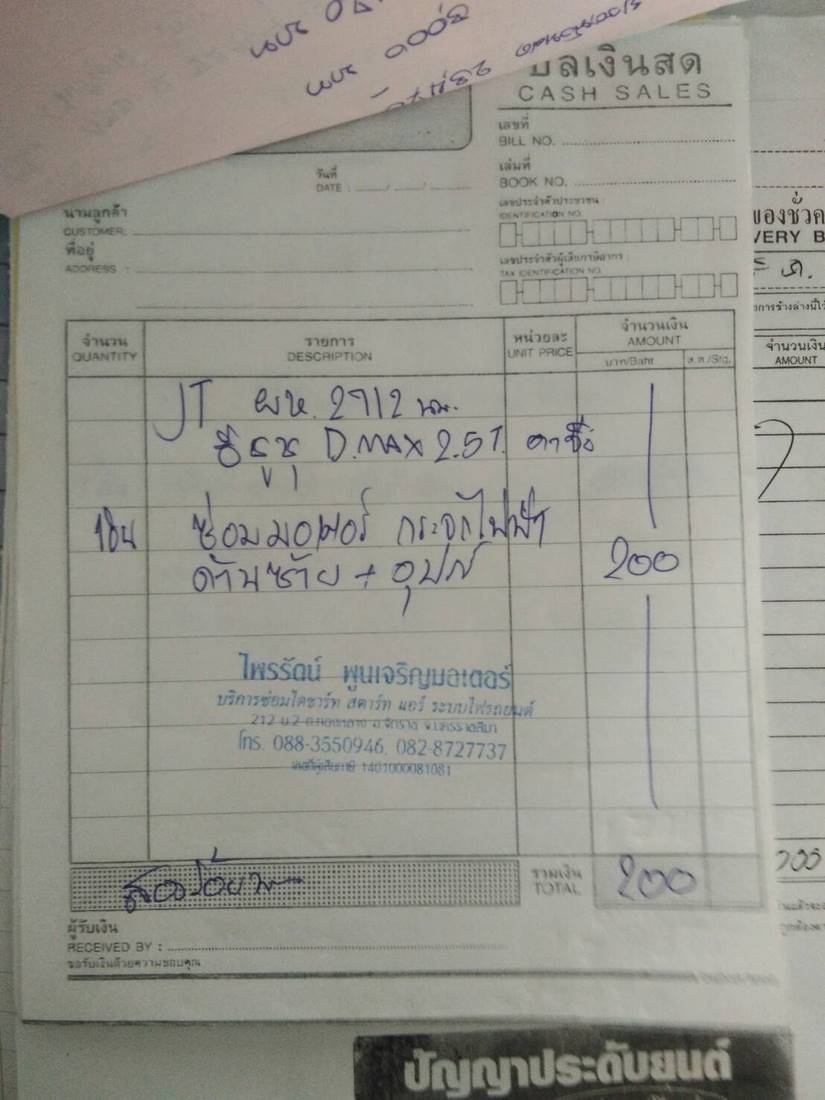 บาท
8,000 บาท
บิลเงินสด
CASH SALES
เลขที่
BILL NO.
วันที่
DATE :
เล่มที่
BOOK NO.
นามลูกค้า
CUSTOMER:
เลขประจำตัวประชาชน :
IDENTIFICATION NO.
ที่อยู่
ADDRESS :
เลขประจำตัวผู้เสียภาษีอากร :
TAX IDENTIFICATION NO.
จำนวน รายการ หน่วยละ จำนวนเงิน
QUANTITY DESCRIPTION UNIT PRICE AMOUNT
บาท/Baht ส.ต./Stg.
JT ผห. 2712 นม.
อีซูซุ D.MAX 2.5T.
ซ่อมมอเตอร์ กระจกไฟฟ้า
ด้านซ้าย + อุปก์ 200
ไพรรัตน์ พูนเจริญมอเตอร์
บริการซ่อมไดชาร์ท สตาร์ท แอร์ ระบบไฟรถยนต์
212 ม.2
โทร. 088-3550946, 082-8727737
เลขที่ผู้เสียภาษี 1401000081081
สองร้อยบาท รวมเงิน
TOTAL 200
ผู้รับเงิน
RECEIVED BY :
ขอรับเงินด้วยความขอบคุณ
ของชั่วค
VERY B
จำนวนเงิน
AMOUNT
ปัญญาประดับยนต์